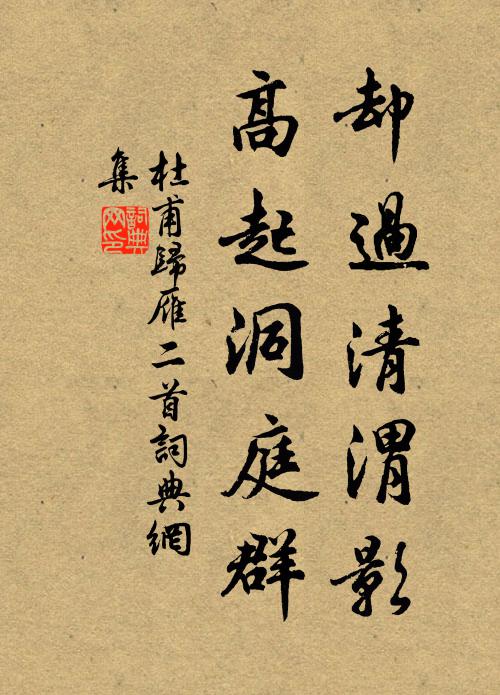 却過清渭影
高起洞庭群
杜甫歸雁二首詞典網
集
詞典
网印